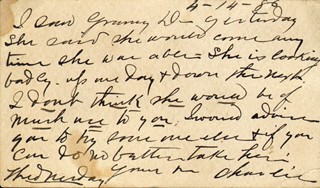 4-14-99
I saw Granny D- yesterday
She said she would come any
time she was able- She is looking
badly. ups one day & down the next
I dont think she would be of
much use to you, I would advise
you to try some one else & if you
can do no better take her.
Wednesday Yours Charlie